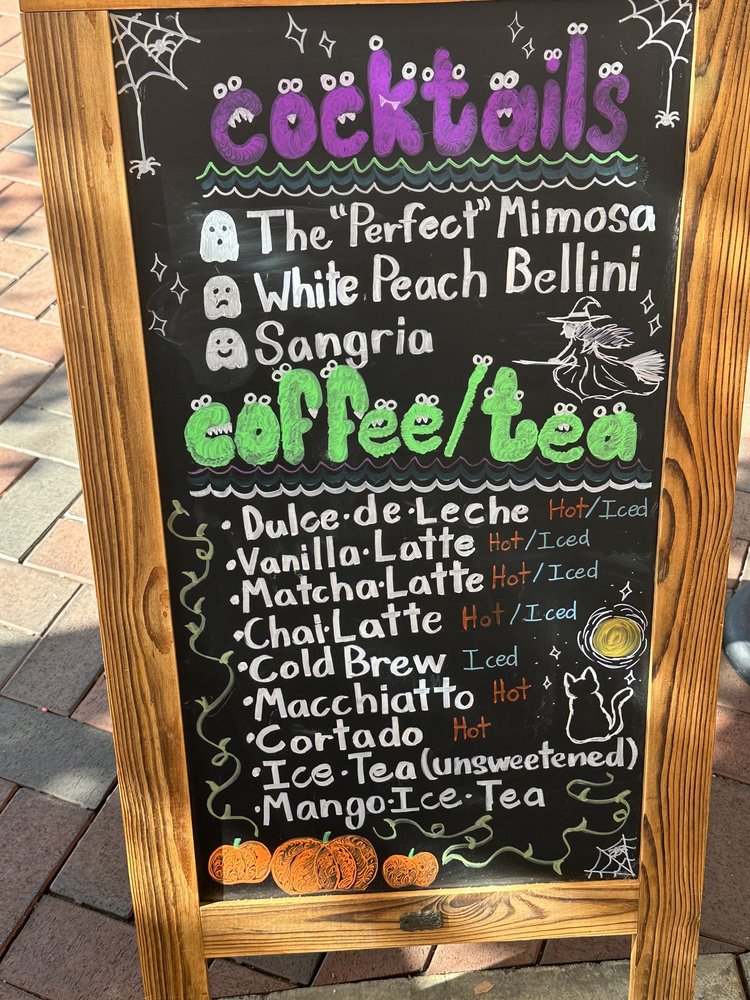 cocktails
The "Perfect" Mimosa
White Peach Bellini
Sangria
coffee/tea
• Dulce•de•Leche Hot/Iced
• Vanilla•Latte Hot/Iced
• Matcha•Latte Hot/Iced
• Chai•Latte Hot/Iced
• Cold Brew Iced
• Macchiatto Hot
• Cortado Hot
• Ice•Tea (unsweetened)
• Mango•Ice•Tea